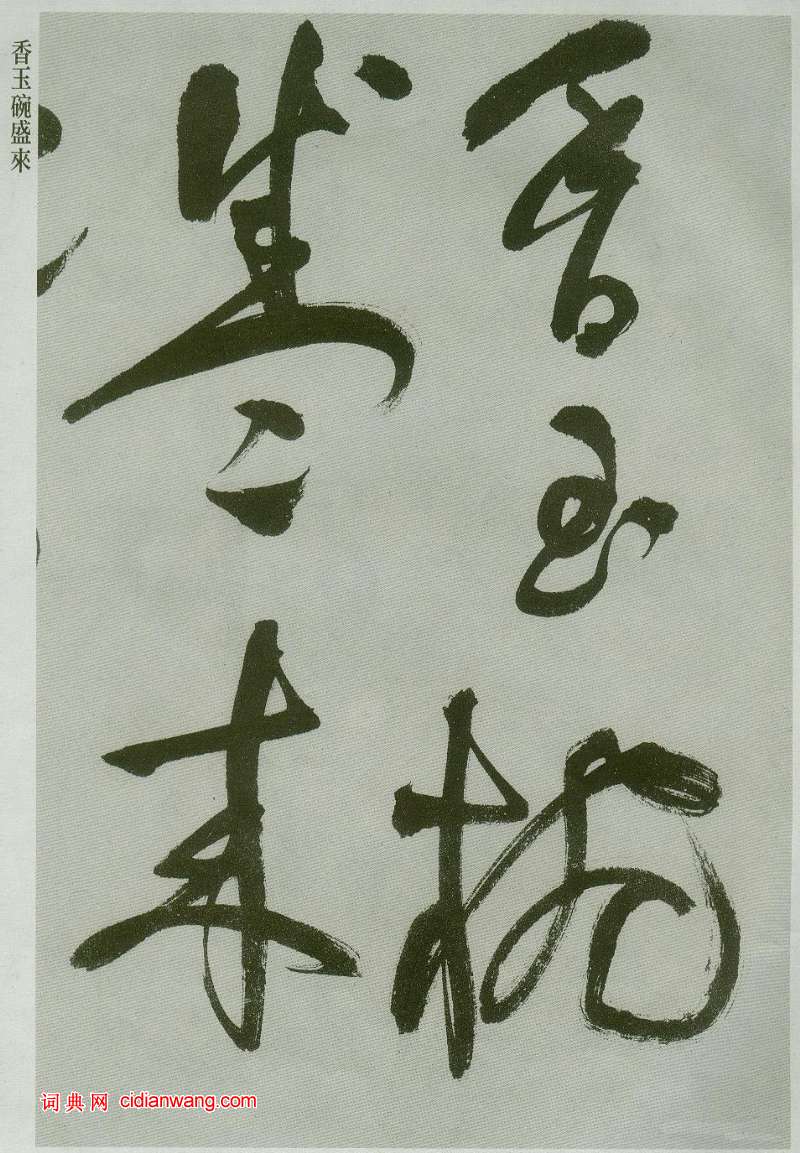 香玉碗盛來
香玉椀
盛來
词典网 cidianwang.com